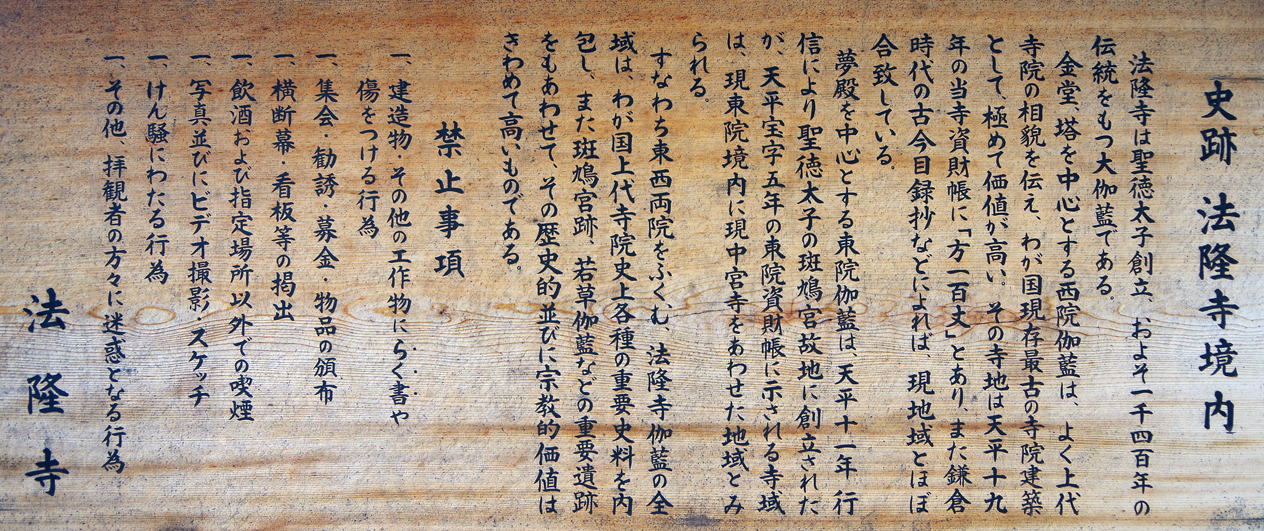 史跡 法隆寺境内
法隆寺は聖徳太子創立、およそ一千四百年の
伝統をもつ大伽藍である。
金堂、塔を中心とする西院伽藍は、よく上代
寺院の相貌を伝え、わが国現存最古の寺院建築
として、極めて価値が高い。その寺地は天平十九
年の当寺資財帳に「方一百丈」とあり、また鎌倉
時代の古今目録抄などによれば、現地域とほぼ
合致している。
夢殿を中心とする東院伽藍は、天平十一年 行
信により聖徳太子の斑鳩宮故地に創立された
が、天平宝字五年の東院資財帳に示される寺域
は、現東院境内に現中宮寺をあわせた地域とみ
られる。
すなわち東西両院をふくむ、法隆寺伽藍の全
域は、わが国上代寺院史上各種の重要史料を内
包し、また斑鳩宮跡、若草伽藍などの重要遺跡
をもあわせて、その歴史的並びに宗教的価値は
きわめて高いものである。
禁止事項
一、建造物・その他の工作物にらく書や
傷をつける行為
一、集会・勧誘・募金・物品の頒布
一、横断幕・看板等の掲出
一、飲酒および指定場所以外での喫煙
一、写真並びにビデオ撮影、スケッチ
一、けん騒にわたる行為
一、その他、拝観者の方々に迷惑となる行為
法隆寺